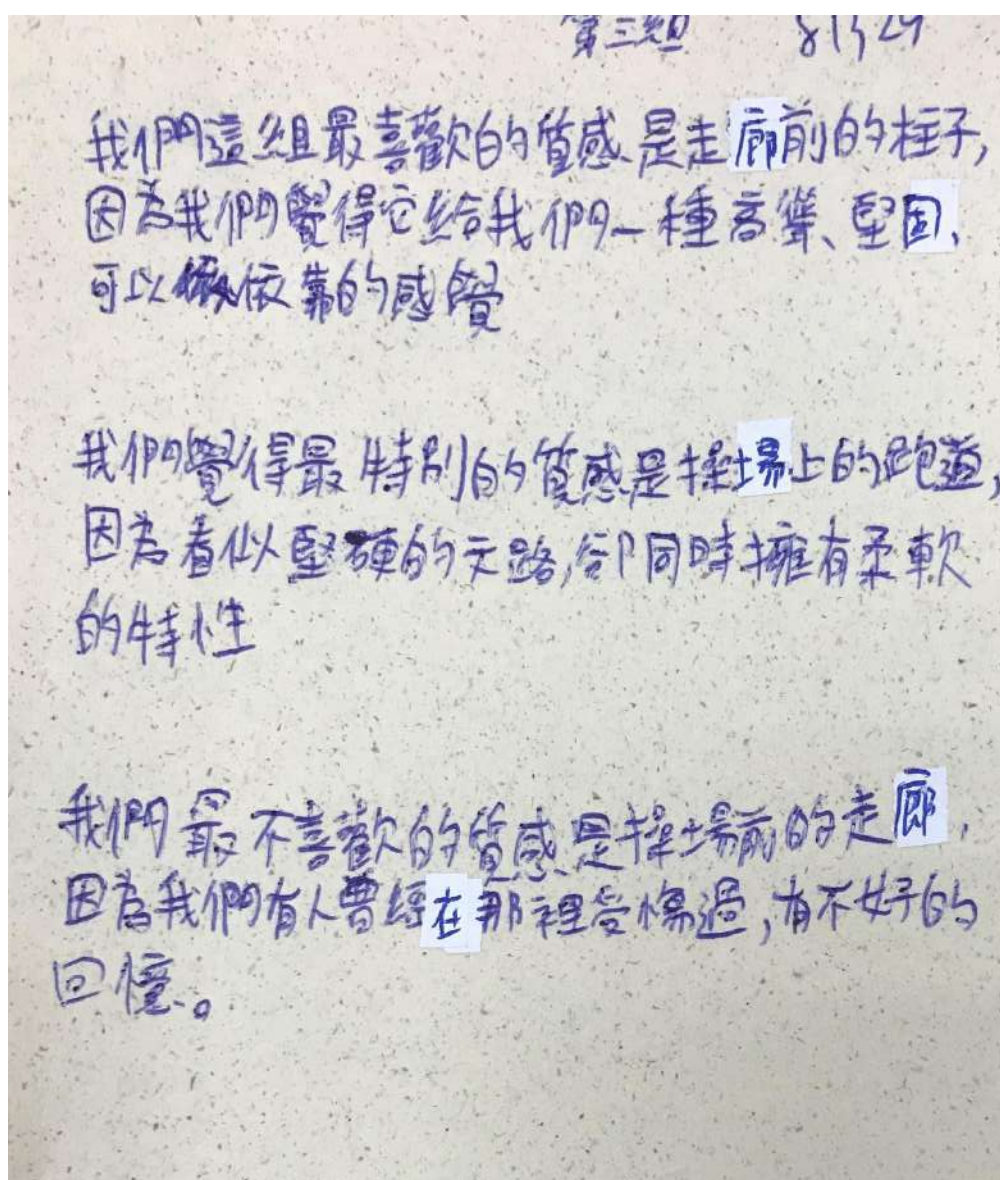 第三組 81324
我們這組最喜歡的質感是走廊前的柱子,
因為我們覺得它給我們一種高聳、堅固、
可以依靠的感覺
我們覺得最特別的質感是操場上的跑道,
因為看似堅硬的道路,卻同時擁有柔軟
的特性
我們最不喜歡的質感是操場前的走廊,
因為我們有人曾經在那裡受傷過,有不好的
回憶。